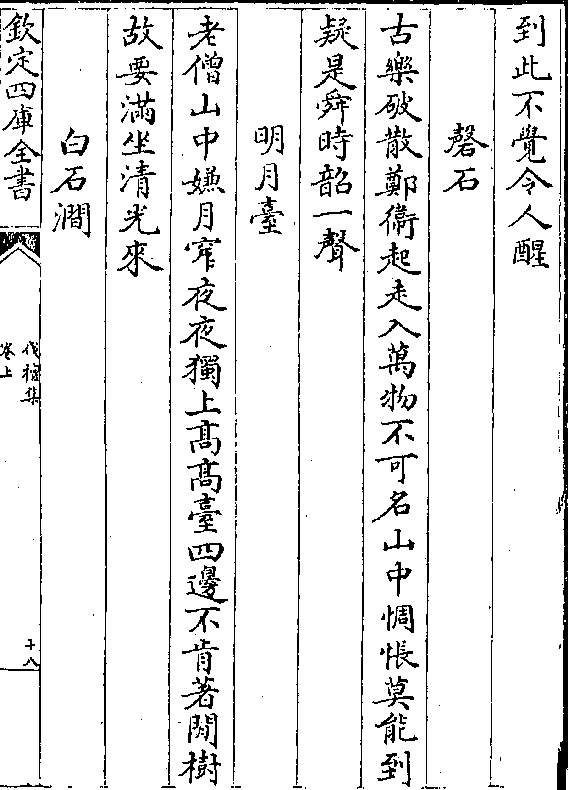 到此不覺令人醒
磬石
古樂破散鄭衛起走入萬物不可名山中惆悵莫能到
疑是舜時韶一聲
明月臺
老僧山中嫌月窄夜夜獨上高高臺四邊不肯著閒樹
故要滿坐清光來
白石澗
欽定四庫全書
伐檀集
卷上
十八